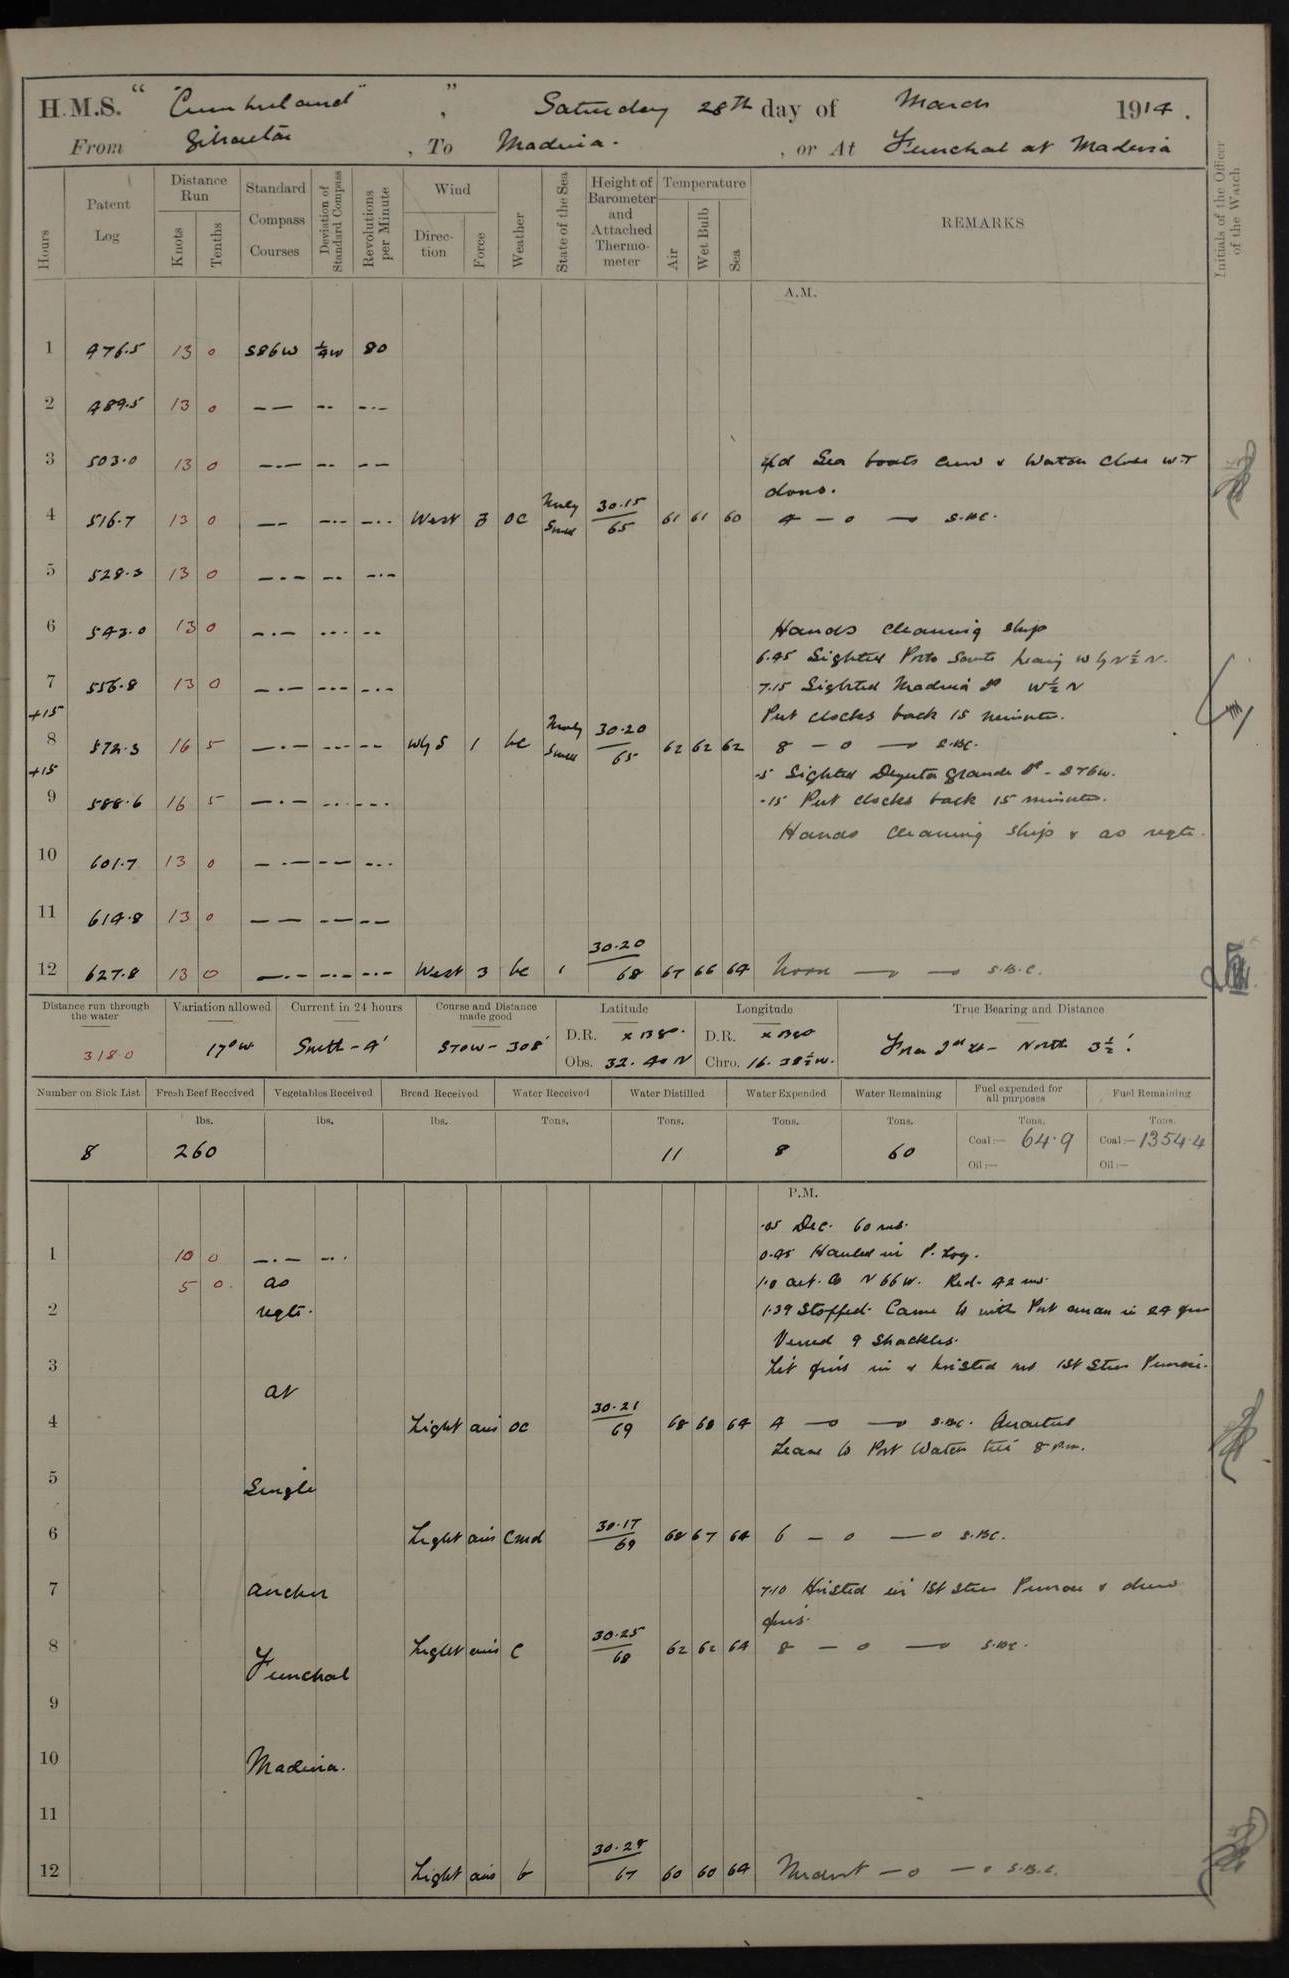 H.M.S. "Cumberland", Saturday 28th day of March 1914.
From Gibraltar, To Madeira., or At Funchal at Madeira
Hours
Patent Log
Distance Run
Knots
Tenths
Standard Compass Courses
Deviation of Standard Compass
Revolutions per Minute
Wind
Direction
Force
Weather
State of the Sea
Height of Barometer and Attached Thermometer
Temperature
Air
Wet Bulb
Sea
REMARKS
Initials of the Officer of the Watch
A.M.
1 476.5 13 0 S86W ¼W 80
2 489.5 13 0 — — -- -·-
3 503.0 13 0 —·— -- --
Sea boats crew & Watch Close W.T
doors.
4 516.7 13 0 —- -·- -·- West 3 oc 30.15 65 61 61 60 4 — o —o S.B.C.
5 528.3 13 0 —·— -- -·-
6 543.0 13 0 —·— --- -- Hands cleaning ship
6.45 Sighted Porto Santo bearing W by N ½ N.
7 556.8 13 0 —·— --- -·- 7.15 Sighted Madeira do W ½ N
+15 Put clocks back 15 minutes.
8 572.3 16 5 —·— --- -- W by S 1 bc 30.20 65 62 62 62 8 — o —o S.B.C.
+15 .5 Sighted Deserta Grande do - S76W.
9 588.6 16 5 —·— --- --- .15 Put clocks back 15 minutes.
Hands cleaning ship & as reqte.
10 601.7 13 0 —·— -- -·-
11 614.8 13 0 — — -- --
12 627.8 13 0 —·- -·- -·- West 3 bc 1 30.20 68 67 66 64 Noon —o —o S.B.C.
Distance run through the water
318.0
Variation allowed
17°W
Current in 24 hours
South - 4'
Course and Distance made good
S70W - 308'
Latitude
D.R.
Obs. 32. 40 N
Longitude
D.R.
Chro. 16. 38½W.
True Bearing and Distance
North 3½'.
Number on Sick List
8
Fresh Beef Received
lbs.
260
Vegetables Received
lbs.
Bread Received
lbs.
Water Received
Tons.
Water Distilled
Tons.
11
Water Expended
Tons.
8
Water Remaining
Tons.
60
Fuel expended for all purposes
Tons.
Coal:— 64.9
Oil:—
Fuel Remaining
Tons.
Coal:— 1354.4
Oil:—
P.M.
.05 Dec. 60 revs.
1 10 0 —·— -·· 0.45 Hauled in P. Log.
5 0. as 1.0 alt. Co N66W. Red. 42 revs.
2 reqte. 1.39 Stopped. Came to with Port in
Veered 9 Shackles.
3 & hoisted out 1st Steam Pinnace.
at
4 Light airs oc 30.21 69 68 68 64 4 —o —o S.B.C.
Leave to Port Watch till 8 am.
5 Single
6 Light airs cmd 30.17 69 68 67 64 6 — o —o S.B.C.
7 anchor 7.10 Hoisted in 1st Steam Pinnace & drew
fires.
8 Light airs c 30.25 68 62 62 64 8 — o —o S.B.C.
Funchal
9
10 Madeira.
11
12 Light airs b 30.28 67 60 60 64 Midnt —o —o S.B.C.